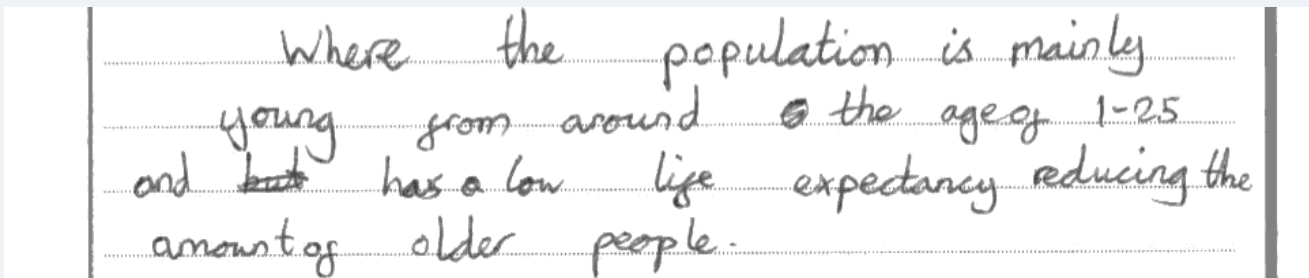 Where the population is mainly
young from around the age of 1-25
and but has a low life expectancy reducing the
amount of older people.